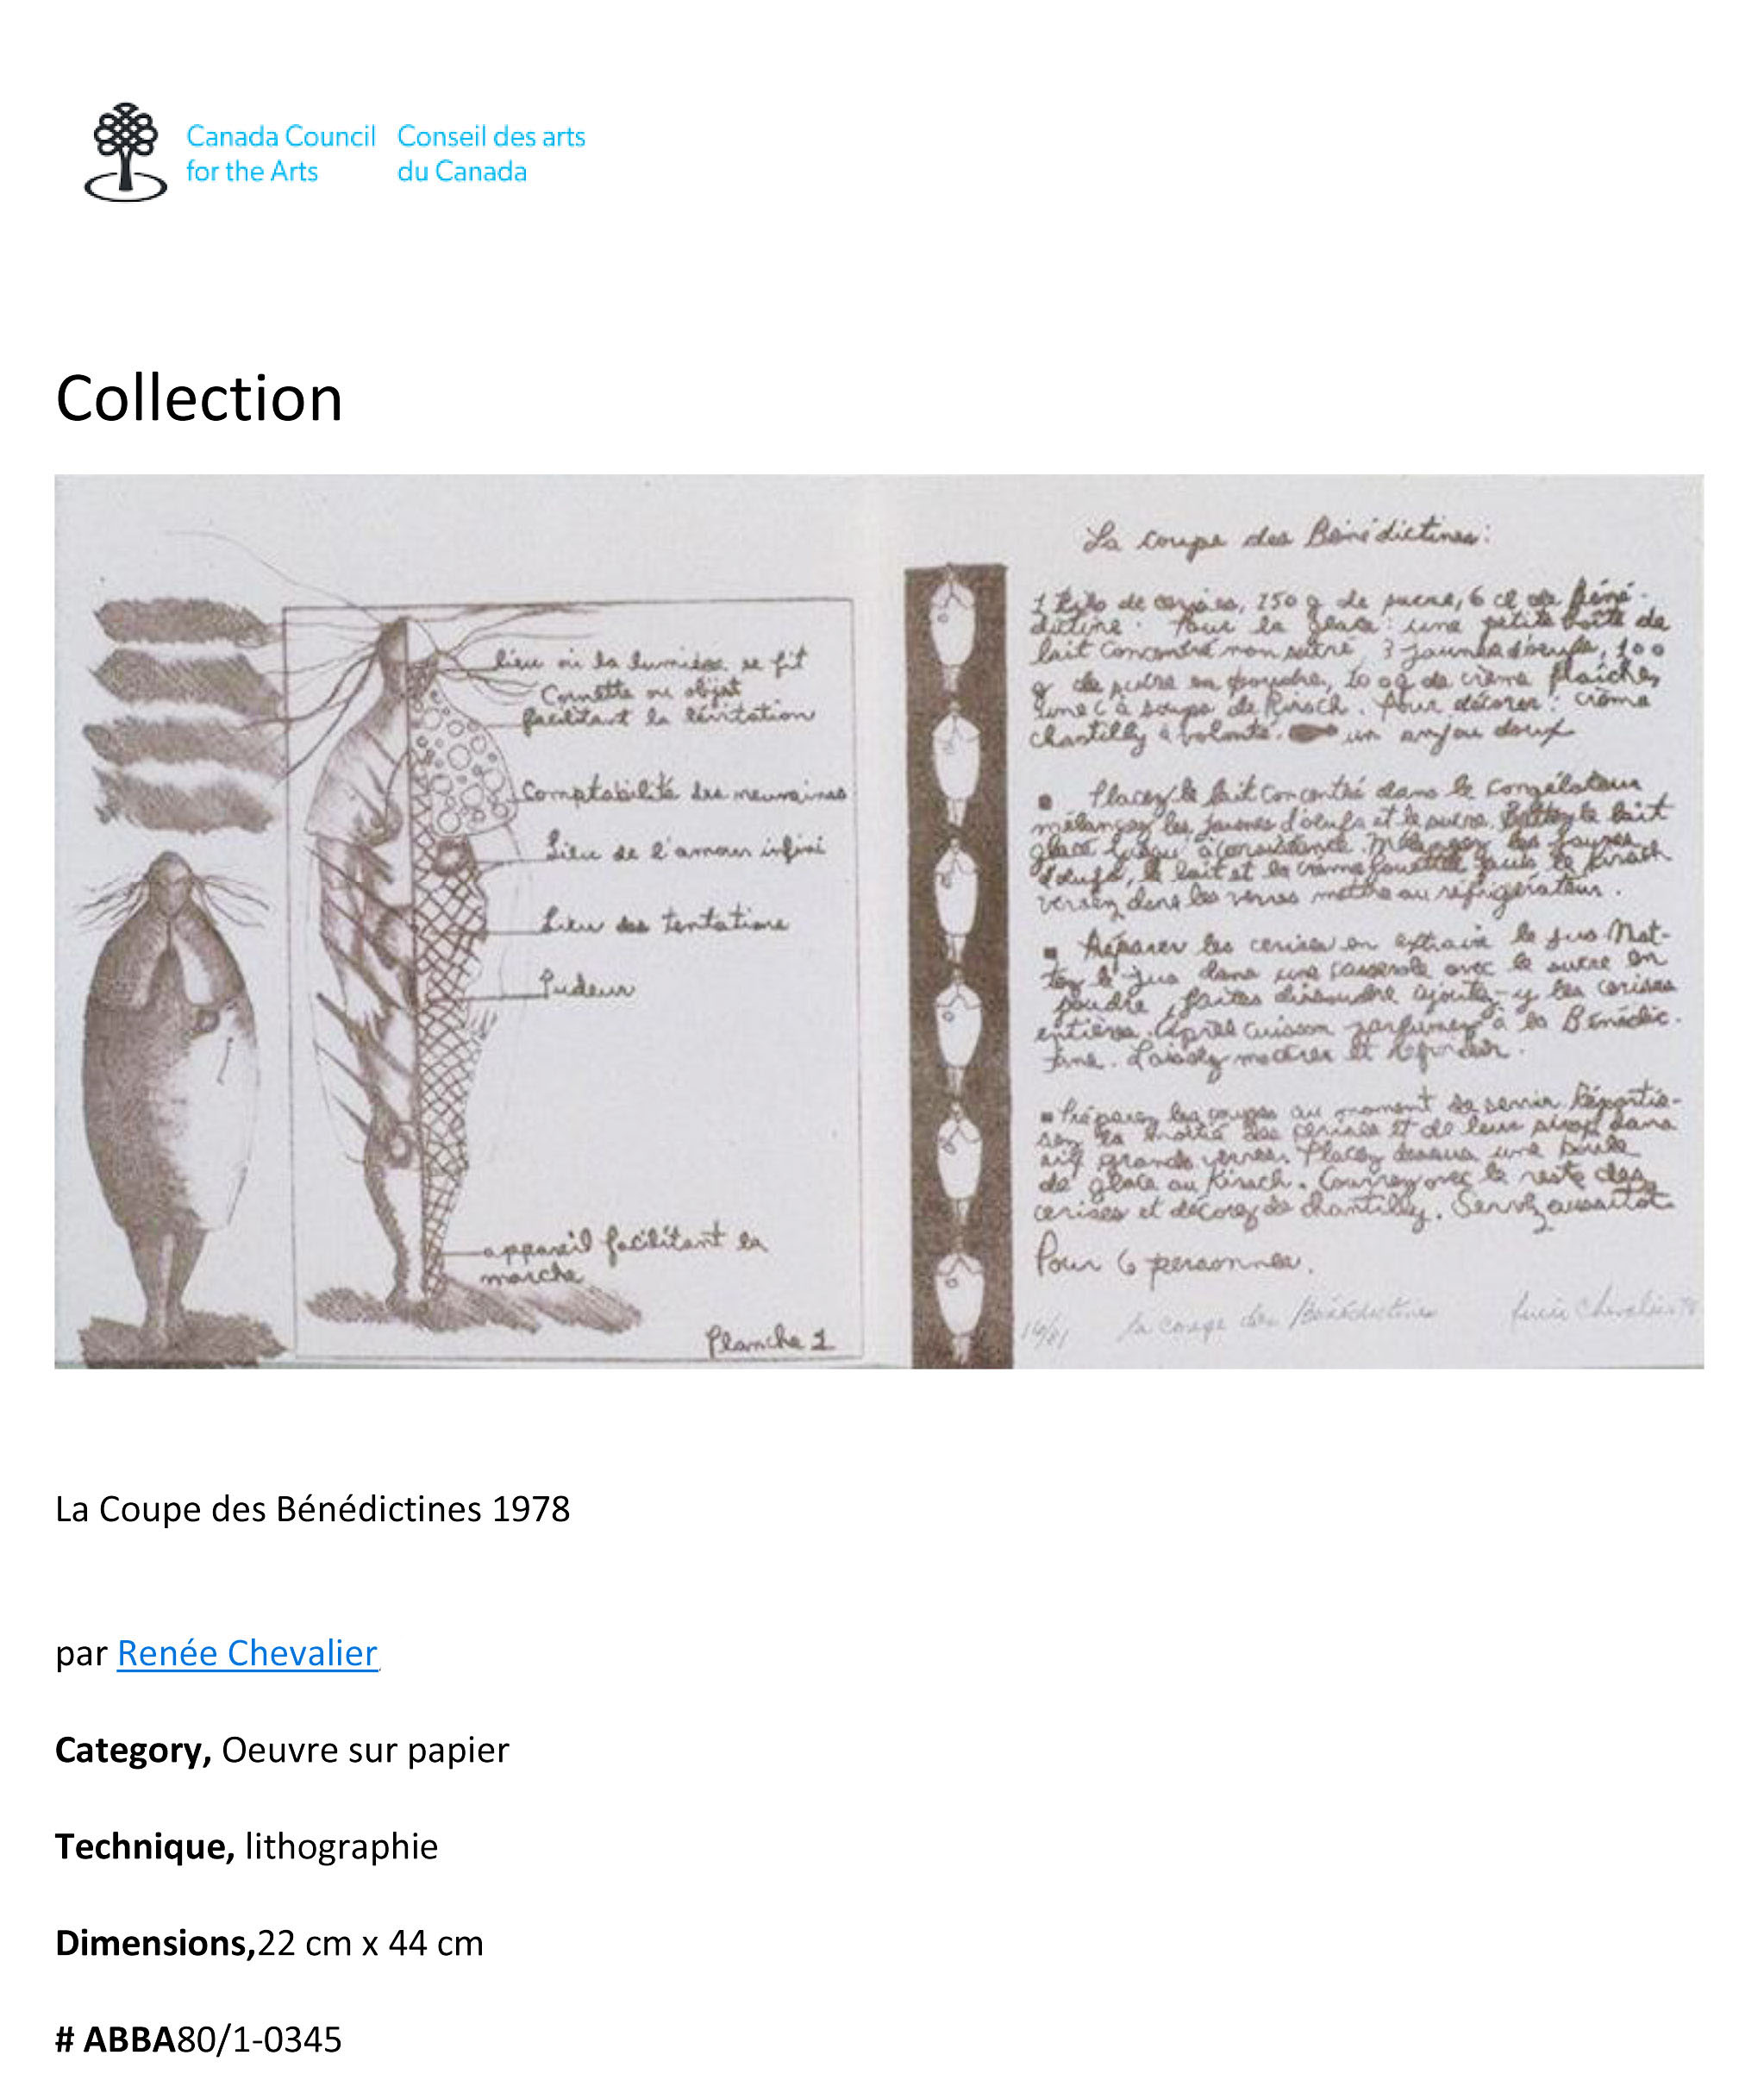 Canada Council Conseil des arts
for the Arts du Canada
Collection
lieu où la lumière se fit
Cornette ou objet
facilitant la lévitation
Comptabilité des neuvaines
Lieu de l'amour infini
Lieu des tentations
Pudeur
appareil facilitant la
marche
Planche 1
La coupe des Bénédictines:
1 kilo de cerises, 250 g de sucre, 6 cl de Béné-
dictine. Pour la glace: une petite boîte de
lait concentré non sucré, 3 jaunes d'oeufs, 100
g de sucre en poudre, 100g de crème fraîche,
1 une c à soupe de Kirsch. Pour décorer: crème
chantilly à volonté. un anjou doux
▪ Placez le lait concentré dans le congélateur
mélangez les jaunes d'oeufs et le sucre. Battez le lait
glacé jusqu'à consistance. Mélangez les jaunes
d'oeufs, le lait et la crème fouettée le Kirsch
versez dans les verres mettre au réfrigérateur.
▪ Préparer les cerises en extraire le jus Met-
tez le jus dans une casserole avec le sucre en
poudre, faites dissoudre ajoutez-y les cerises
entières. Après cuisson parfumez à la Bénédic-
tine. Laissez macérer et refroidir.
▪ Préparez les coupes au moment de servir. Répartis-
sez la moitié des cerises et de leur sirop dans
six grands verres. Placez dessus une boule
de glace au Kirsch. Couvrez avec le reste des
cerises et décorez de chantilly. Servez aussitôt.
Pour 6 personnes.
La coupe des Bénédictines Chevalier 78
La Coupe des Bénédictines 1978
par Renée Chevalier
Category, Oeuvre sur papier
Technique, lithographie
Dimensions,22 cm x 44 cm
# ABBA80/1-0345